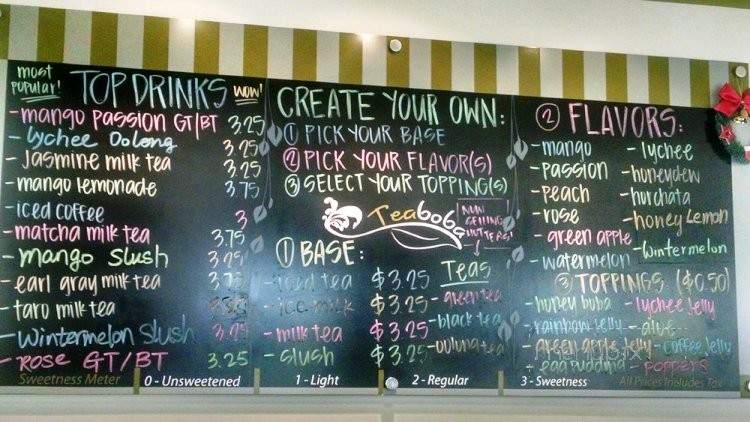 most popular! TOP DRINKS wow!
- mango passion GT/BT 3.25
- lychee Oolong 3.25
- Jasmine milk tea 3.25
- mango lemonade 3.75
- iced coffee 3
- matcha milk tea 3.75
- mango slush 3.25
- earl gray milk tea
- taro milk tea
- Wintermelon slush 3.25
- Rose GT/BT 3.25
CREATE YOUR OWN:
① PICK YOUR BASE
② PICK YOUR FLAVOR(S)
③ SELECT YOUR TOPPING(S)
Teaboba
NOW SELLING
① BASE:
- iced tea $3.25
- ice milk $3.25
- milk tea $3.25
- slush $3.25
TEAS
- green tea
- black tea
- oolong tea
② FLAVORS:
- mango
- passion
- peach
- rose
- green apple
- watermelon
- lychee
- honeydew
- horchata
- honey lemon
- wintermelon
③ TOPPINGS ($0.50)
- honey boba - lychee jelly
- rainbow jelly - aloe
- green apple jelly - coffee jelly
- egg pudding - POPPERS
Sweetness Meter 0 - Unsweetened 1 - Light 2 - Regular 3 - Sweetness All Prices Includes Tax